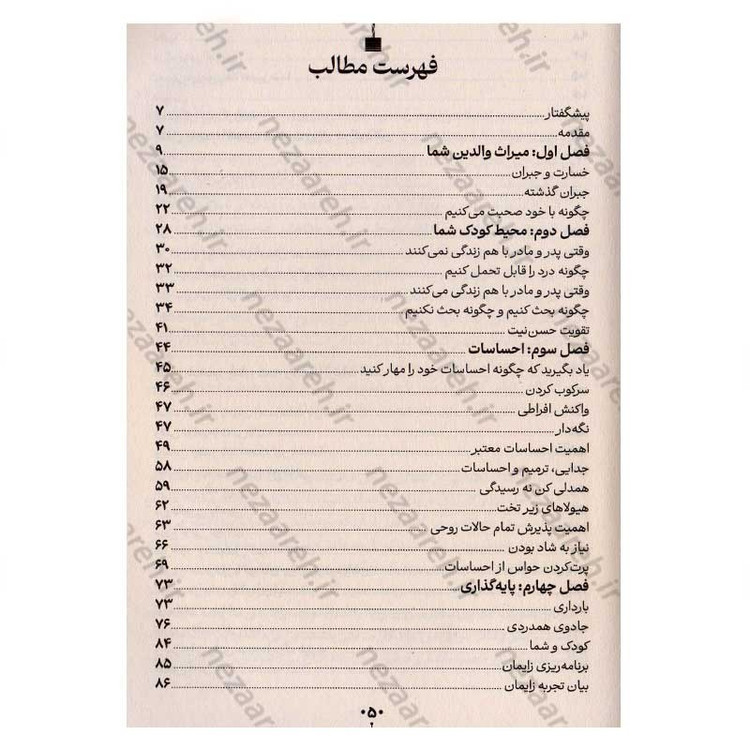 فهرست مطالب
پیشگفتار ۷
مقدمه ۷
فصل اول: میراث والدین شما ۹
خسارت و جبران ۱۵
جبران گذشته ۱۹
چگونه با خود صحبت می‌کنیم ۲۲
فصل دوم: محیط کودک شما ۲۸
وقتی پدر و مادر با هم زندگی نمی‌کنند ۳۰
چگونه درد را قابل تحمل کنیم ۳۲
وقتی پدر و مادر با هم زندگی می‌کنند ۳۳
چگونه بحث کنیم و چگونه بحث نکنیم ۳۴
تقویت حسن‌نیت ۴۱
فصل سوم: احساسات ۴۴
یاد بگیرید که چگونه احساسات خود را مهار کنید ۴۵
سرکوب کردن ۴۶
واکنش افراطی ۴۷
نگه‌دار ۴۷
اهمیت احساسات معتبر ۴۹
جدایی، ترمیم و احساسات ۵۸
همدلی کن نه رسیدگی ۵۹
هیولاهای زیر تخت ۶۲
اهمیت پذیرش تمام حالات روحی ۶۳
نیاز به شاد بودن ۶۶
پرت‌کردن حواس از احساسات ۶۹
فصل چهارم: پایه‌گذاری ۷۳
بارداری ۷۳
جادوی همدردی ۷۶
کودک و شما ۸۴
برنامه‌ریزی زایمان ۸۵
بیان تجربه زایمان ۸۶
۰۵۰
nezaareh.ir